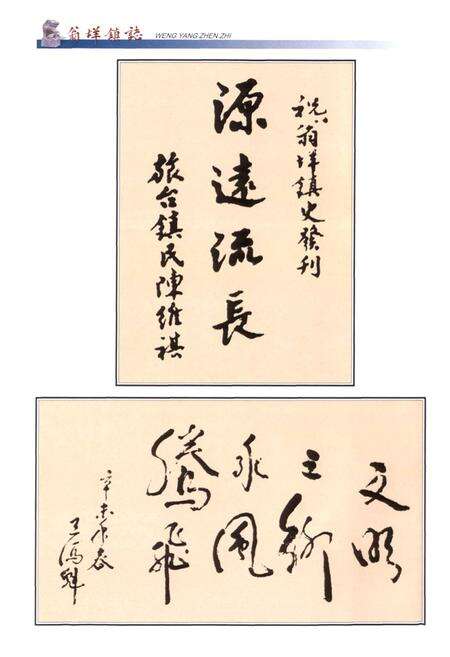 翁垟鎮誌 WENG YANG ZHEN ZHI
祝翁垟鎮史發刊
源遠流長
旅台鎮民陳維祺
文明
之鄉
風
騰飛
辛未年春